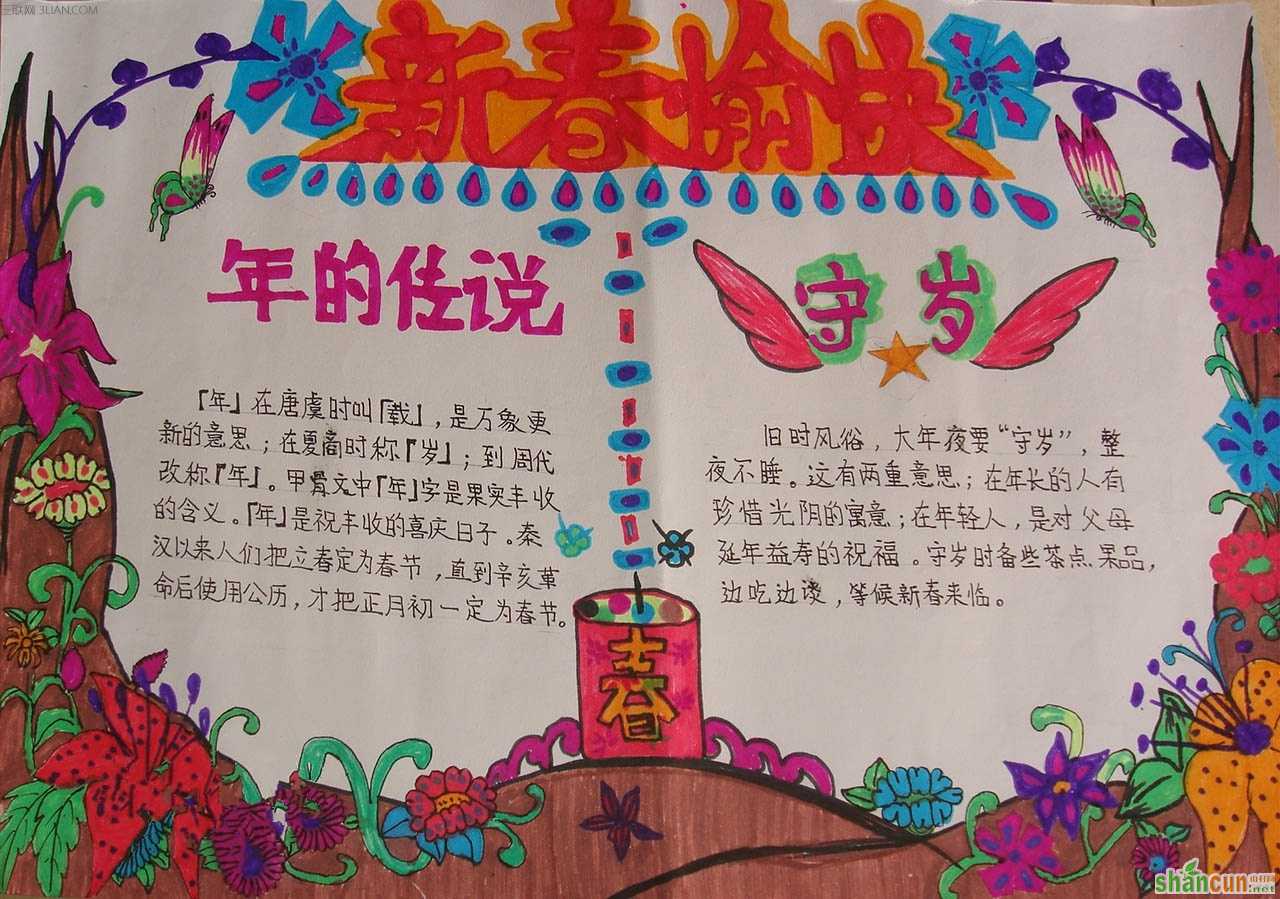 三联网 3LIAN.COM
新春愉快
年的传说
『年』在唐虞时叫『载』，是万象更
新的意思；在夏商时称『岁』；到周代
改称『年』。甲骨文中『年』字是果实丰收
的含义。『年』是祝丰收的喜庆日子。秦
汉以来人们把立春定为春节，直到辛亥革
命后使用公历，才把正月初一定为春节。
守岁
旧时风俗，大年夜要“守岁”，整
夜不睡。这有两重意思；在年长的人有
珍惜光阴的寓意；在年轻人，是对父母
延年益寿的祝福。守岁时备些茶点果品，
边吃边谈，等候新春来临。
春
shancun
.net